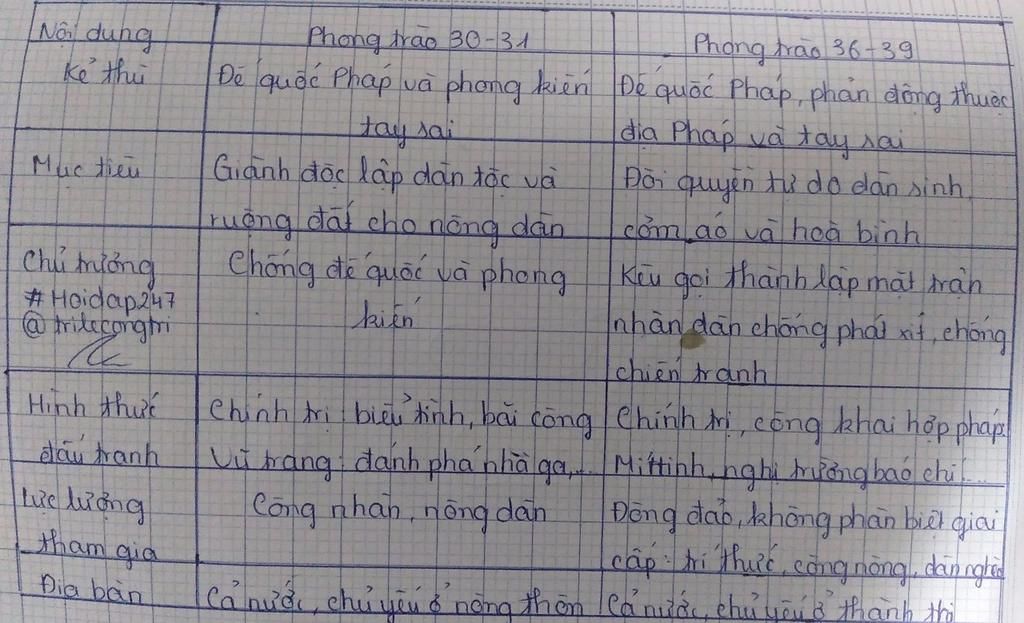 Nội dung
Phong trào 30-31
Phong trào 36-39
Kẻ thù
Đế quốc Pháp và phong kiến
tay sai
Đế quốc Pháp, phản động thuộc
địa Pháp và tay sai
Mục tiêu
Giành độc lập dân tộc và
ruộng đất cho nông dân
Đòi quyền tự do dân sinh,
cơm áo và hoà bình
Chủ trương
#Hoidap247
@trideconatri
Chống đế quốc và phong
kiến
Kêu gọi thành lập mặt trận
nhân dân chống phát xít, chống
chiến tranh
Hình thức
đấu tranh
Chính trị: biểu tình, bãi công
Vũ trang: đánh phá nhà ga,...
Chính trị, công khai hợp pháp:
Mittinh, nghị trường báo chí...
Lực lượng
tham gia
Công nhân, nông dân
Đông đảo, không phân biệt giai
cấp: trí thức, công nông, dân nghèo
Địa bàn
Cả nước, chủ yếu ở nông thôn
Cả nước, chủ yếu ở thành thị